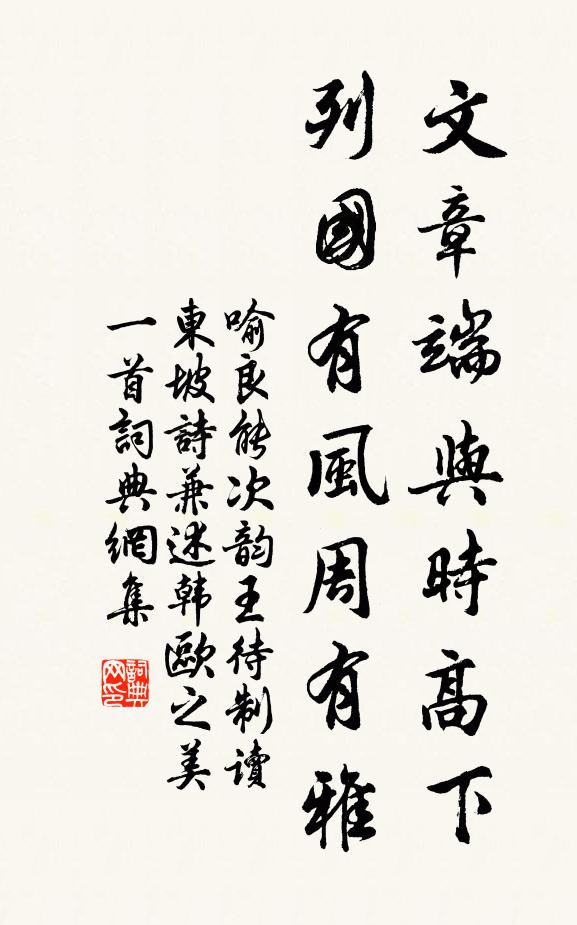 文章端與時高下
列國有風周有雅
喻良能次韵王待制讀
東坡詩兼述韩歐之美
一首詞典網集
詞典网印